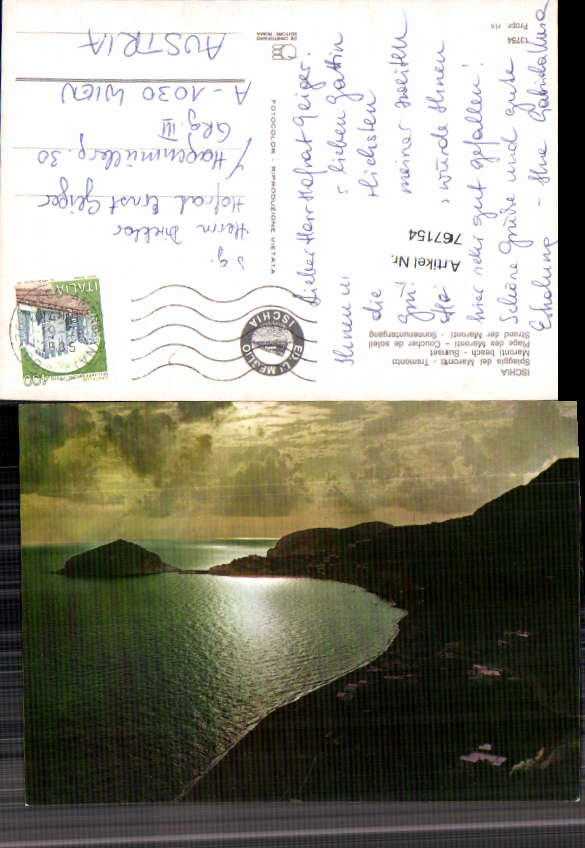 ISCHIA
Spiaggia dei Maronti - Tramonto
Maronti beach - Sunset
Plage des Maronti - Coucher de soleil
Strand der Maronti - Sonnenuntergang
Lieber Herr Hofrat Geiger.
Ihnen u
lieben Gattin
die
herzlichsten
meiner zweiten
würde Ihnen
hier sehr gut gefallen!
Schöne Grüße und gute
Erholung - Ihre
Artikel Nr.
767154
13754
Propr. ris
FOTOCOLOR - RIPRODUZIONE VIETATA
ISCHIA
ITALIA
400
S.g.
Herrn Direktor
Hofrat Ernst Geiger
Hagenmüllerg. 30
GRg. III
A-1030 WIEN
AUSTRIA